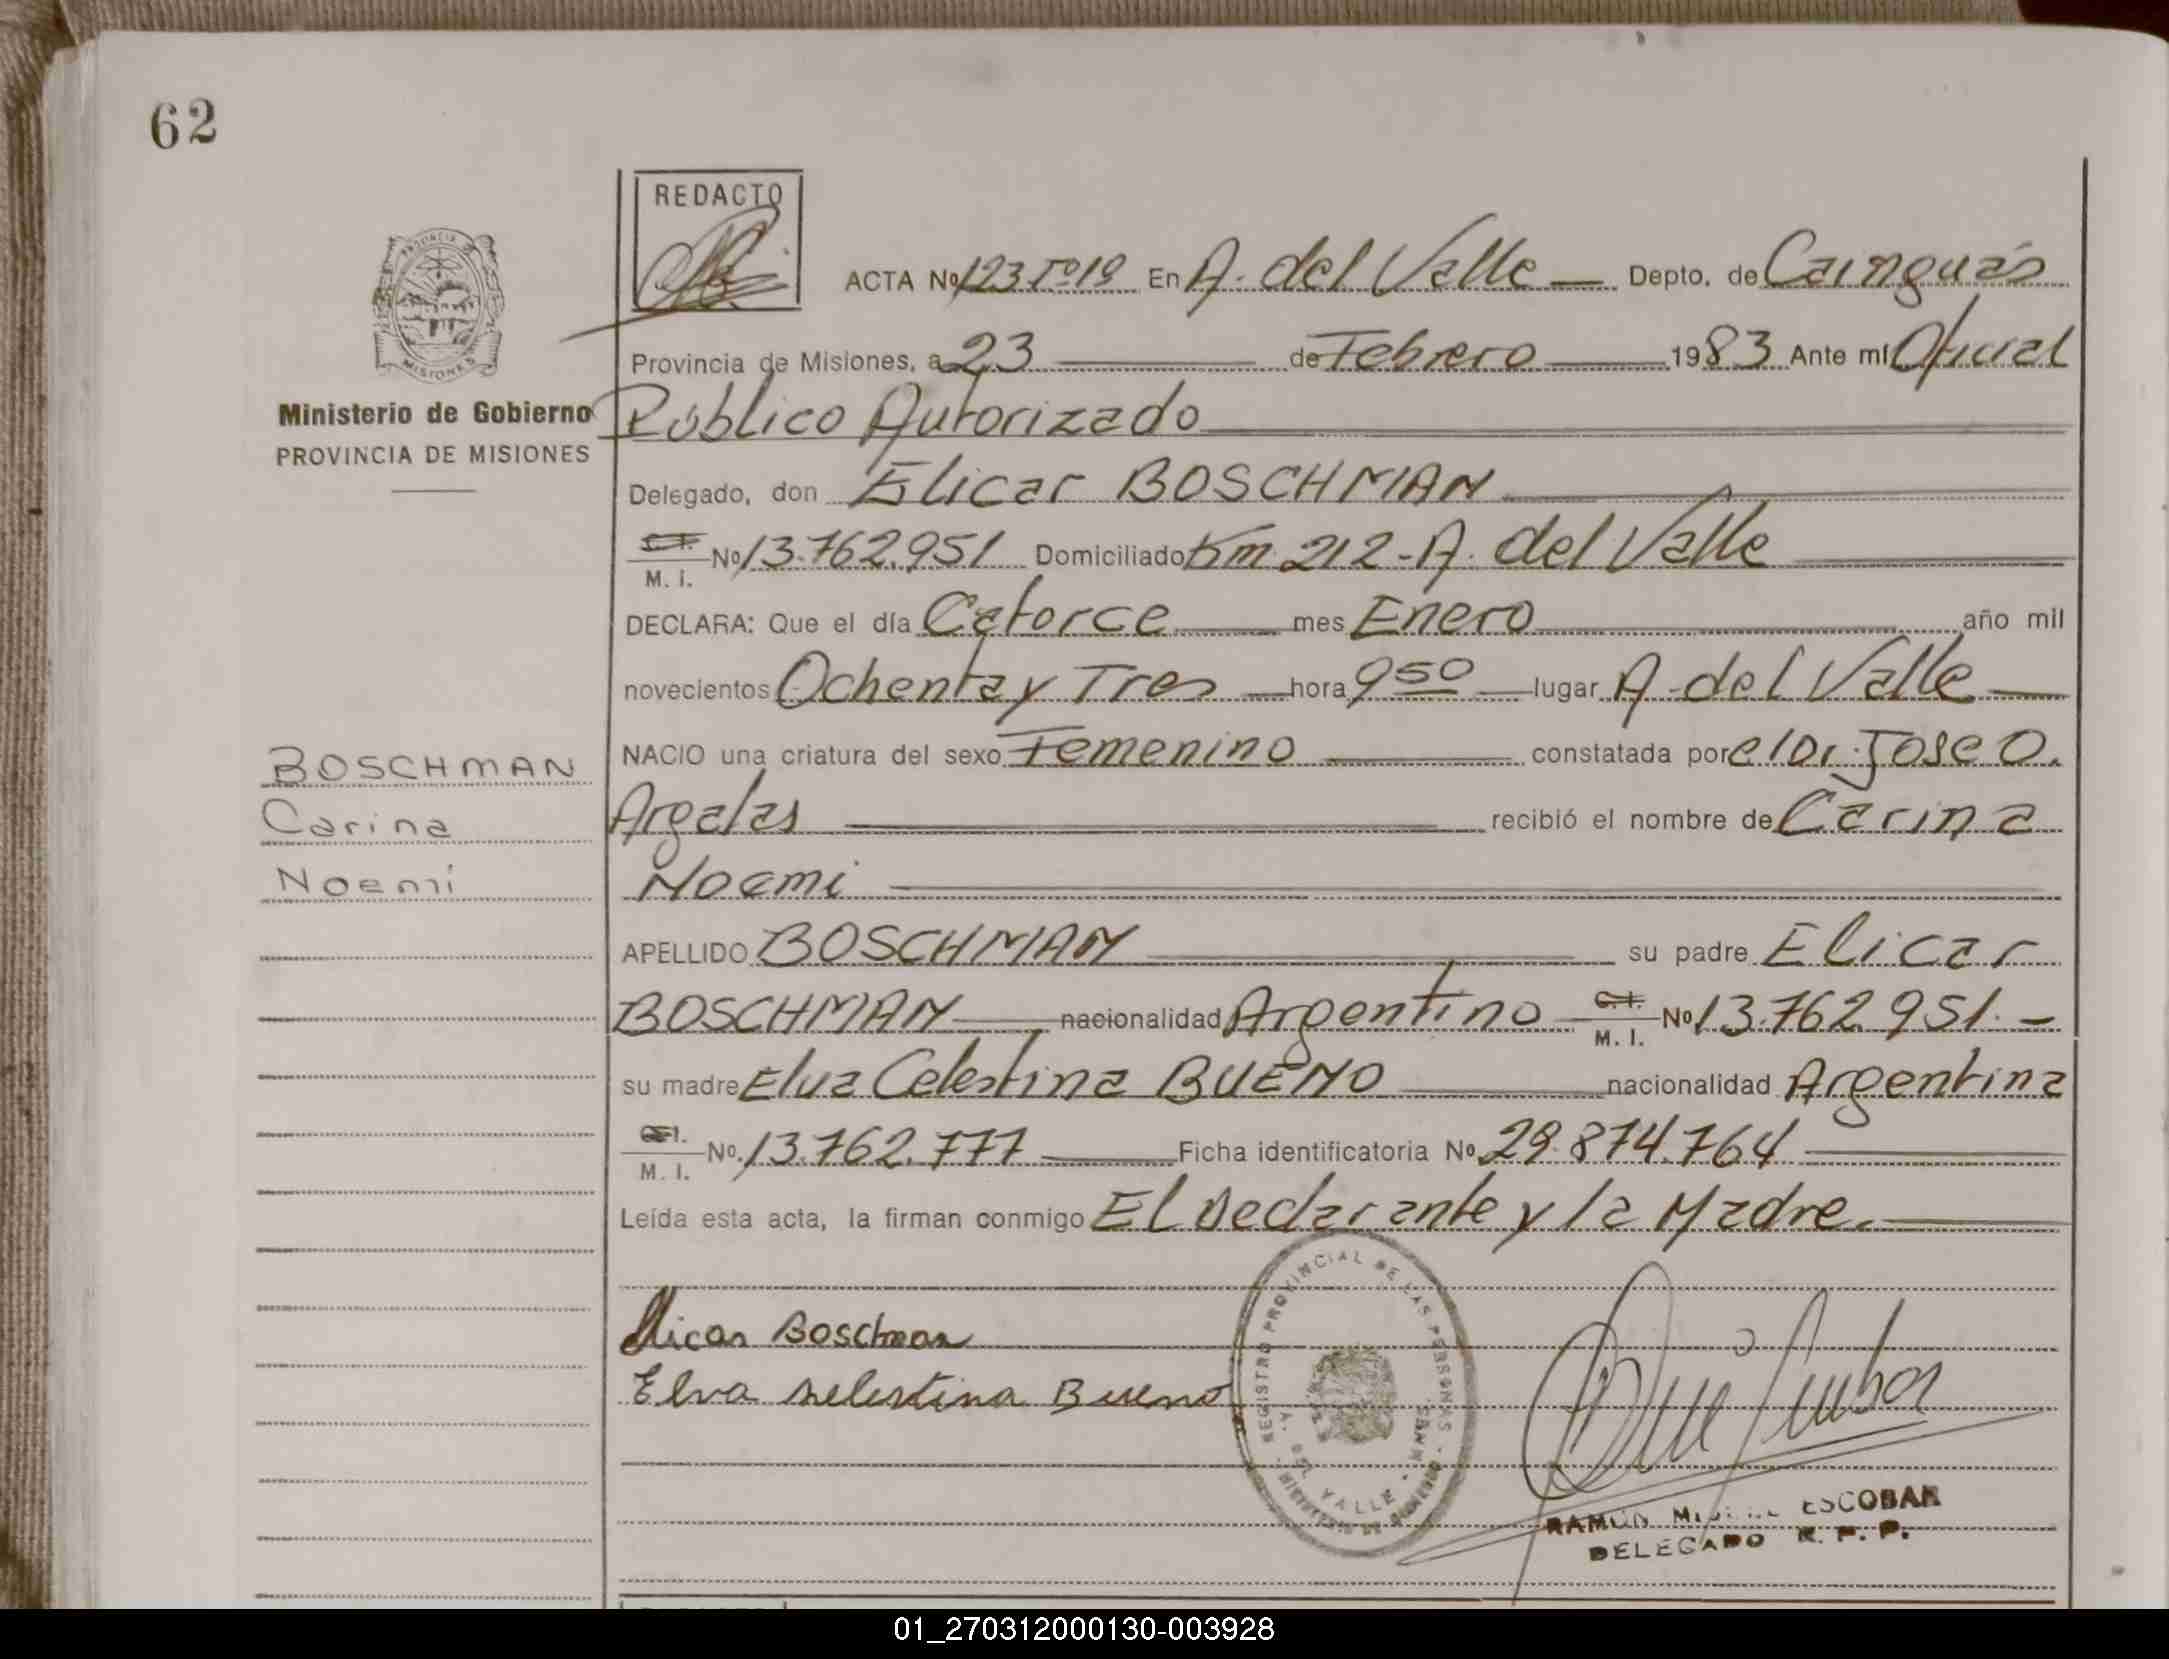 62
REDACTO
PROVINCIA DE
MISIONES
Ministerio de Gobierno
PROVINCIA DE MISIONES
ACTA Nº 123 Tº 19 En A. del Valle Depto. de Cainguás
Provincia de Misiones, a 23 de Febrero 1983 Ante mí Oficial
Público Autorizado
Delegado, don Elicar BOSCHMAN
C.I. M. I. Nº 13.762.951 Domiciliado Km 212 - A. del Valle
DECLARA: Que el día Catorce mes Enero año mil
novecientos Ochenta y Tres hora 9 50 lugar A. del Valle
NACIO una criatura del sexo Femenino constatada por el Dr. Jose O.
Argalas recibió el nombre de Carina
Noemi
APELLIDO BOSCHMAN su padre Elicar
BOSCHMAN nacionalidad Argentino C.I. M. I. Nº 13.762.951.-
su madre Elva Celestina BUENO nacionalidad Argentina
C.I. M. I. Nº. 13.762.777 Ficha identificatoria Nº 29.874.764
Leída esta acta, la firman conmigo El Declarante y la Madre.
BOSCHMAN
Carina
Noemí
Elicar Boschman
Elva Selestina Bueno
REGISTRO PROVINCIAL DE LAS PERSONAS
A. DEL VALLE - MNES
MINISTERIO DE GOBIERNO
RAMÓN ESCOBAR
DELEGADO R. P. P.
01_270312000130-003928